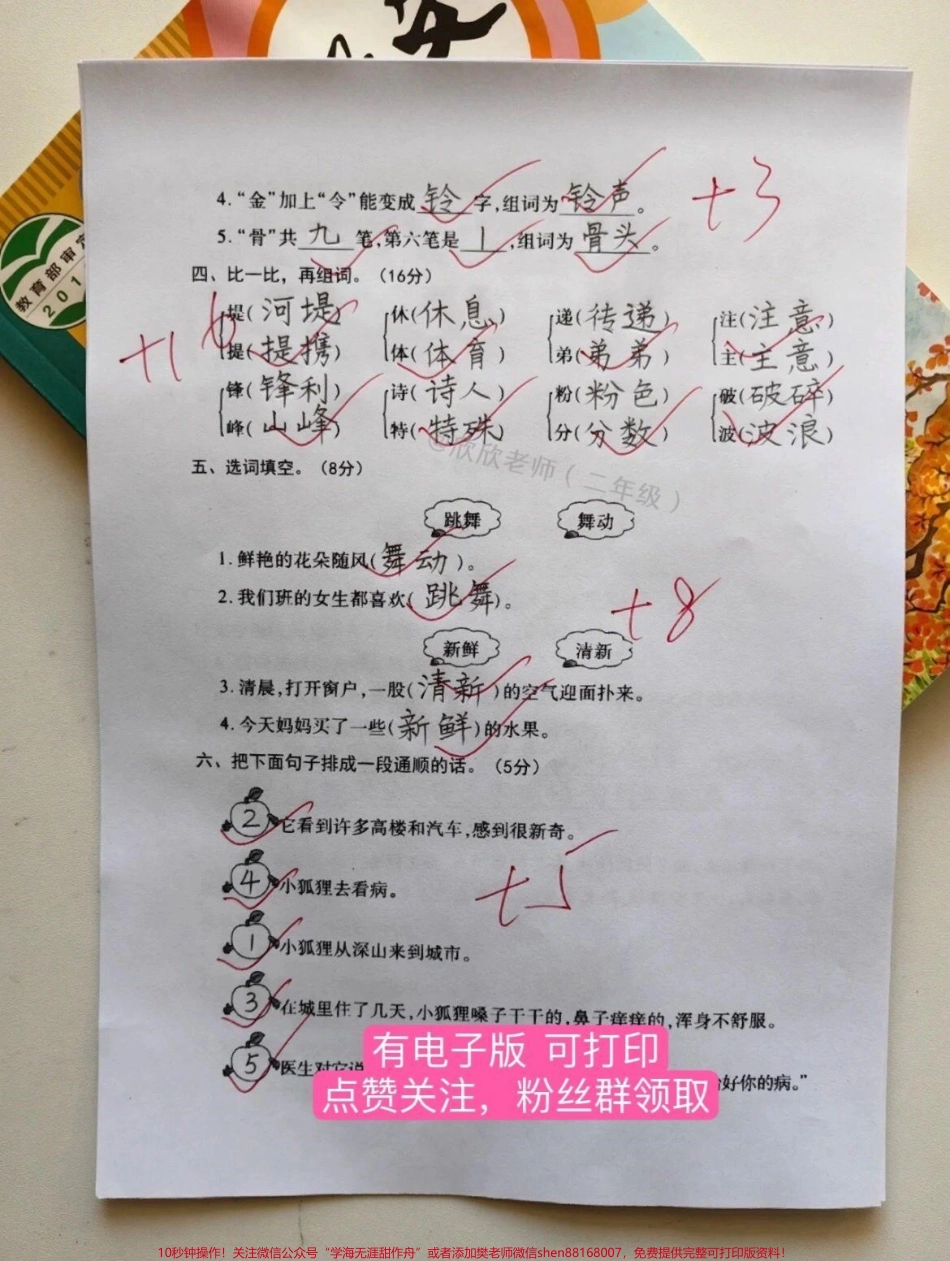 教育部审定
201
4.“金”加上“令”能变成 铃 字,组词为 铃声 。
+3
5.“骨”共 九 笔,第六笔是 丨 ,组词为 骨头 。
四、比一比，再组词。（16分）
+16
堤(河堤) 休(休息) 递(传递) 注(注意)
提(提携) 体(体育) 弟(弟弟) 主(主意)
锋(锋利) 诗(诗人) 粉(粉色) 破(破碎)
峰(山峰) 特(特殊) 分(分数) 波(波浪)
@欣欣老师（二年级）
五、选词填空。（8分）
跳舞 舞动
1.鲜艳的花朵随风(舞动)。
2.我们班的女生都喜欢(跳舞)。
+8
新鲜 清新
3.清晨,打开窗户,一股(清新)的空气迎面扑来。
4.今天妈妈买了一些(新鲜)的水果。
六、把下面句子排成一段通顺的话。（5分）
2 它看到许多高楼和汽车,感到很新奇。
4 小狐狸去看病。
+5
1 小狐狸从深山来到城市。
3 在城里住了几天,小狐狸嗓子干干的,鼻子痒痒的,浑身不舒服。
5 医生对它说
好你的病。”
有电子版 可打印
点赞关注，粉丝群领取
10秒钟操作！关注微信公众号“学海无涯甜作舟”或者添加樊老师微信shen88168007，免费提供完整可打印版资料！